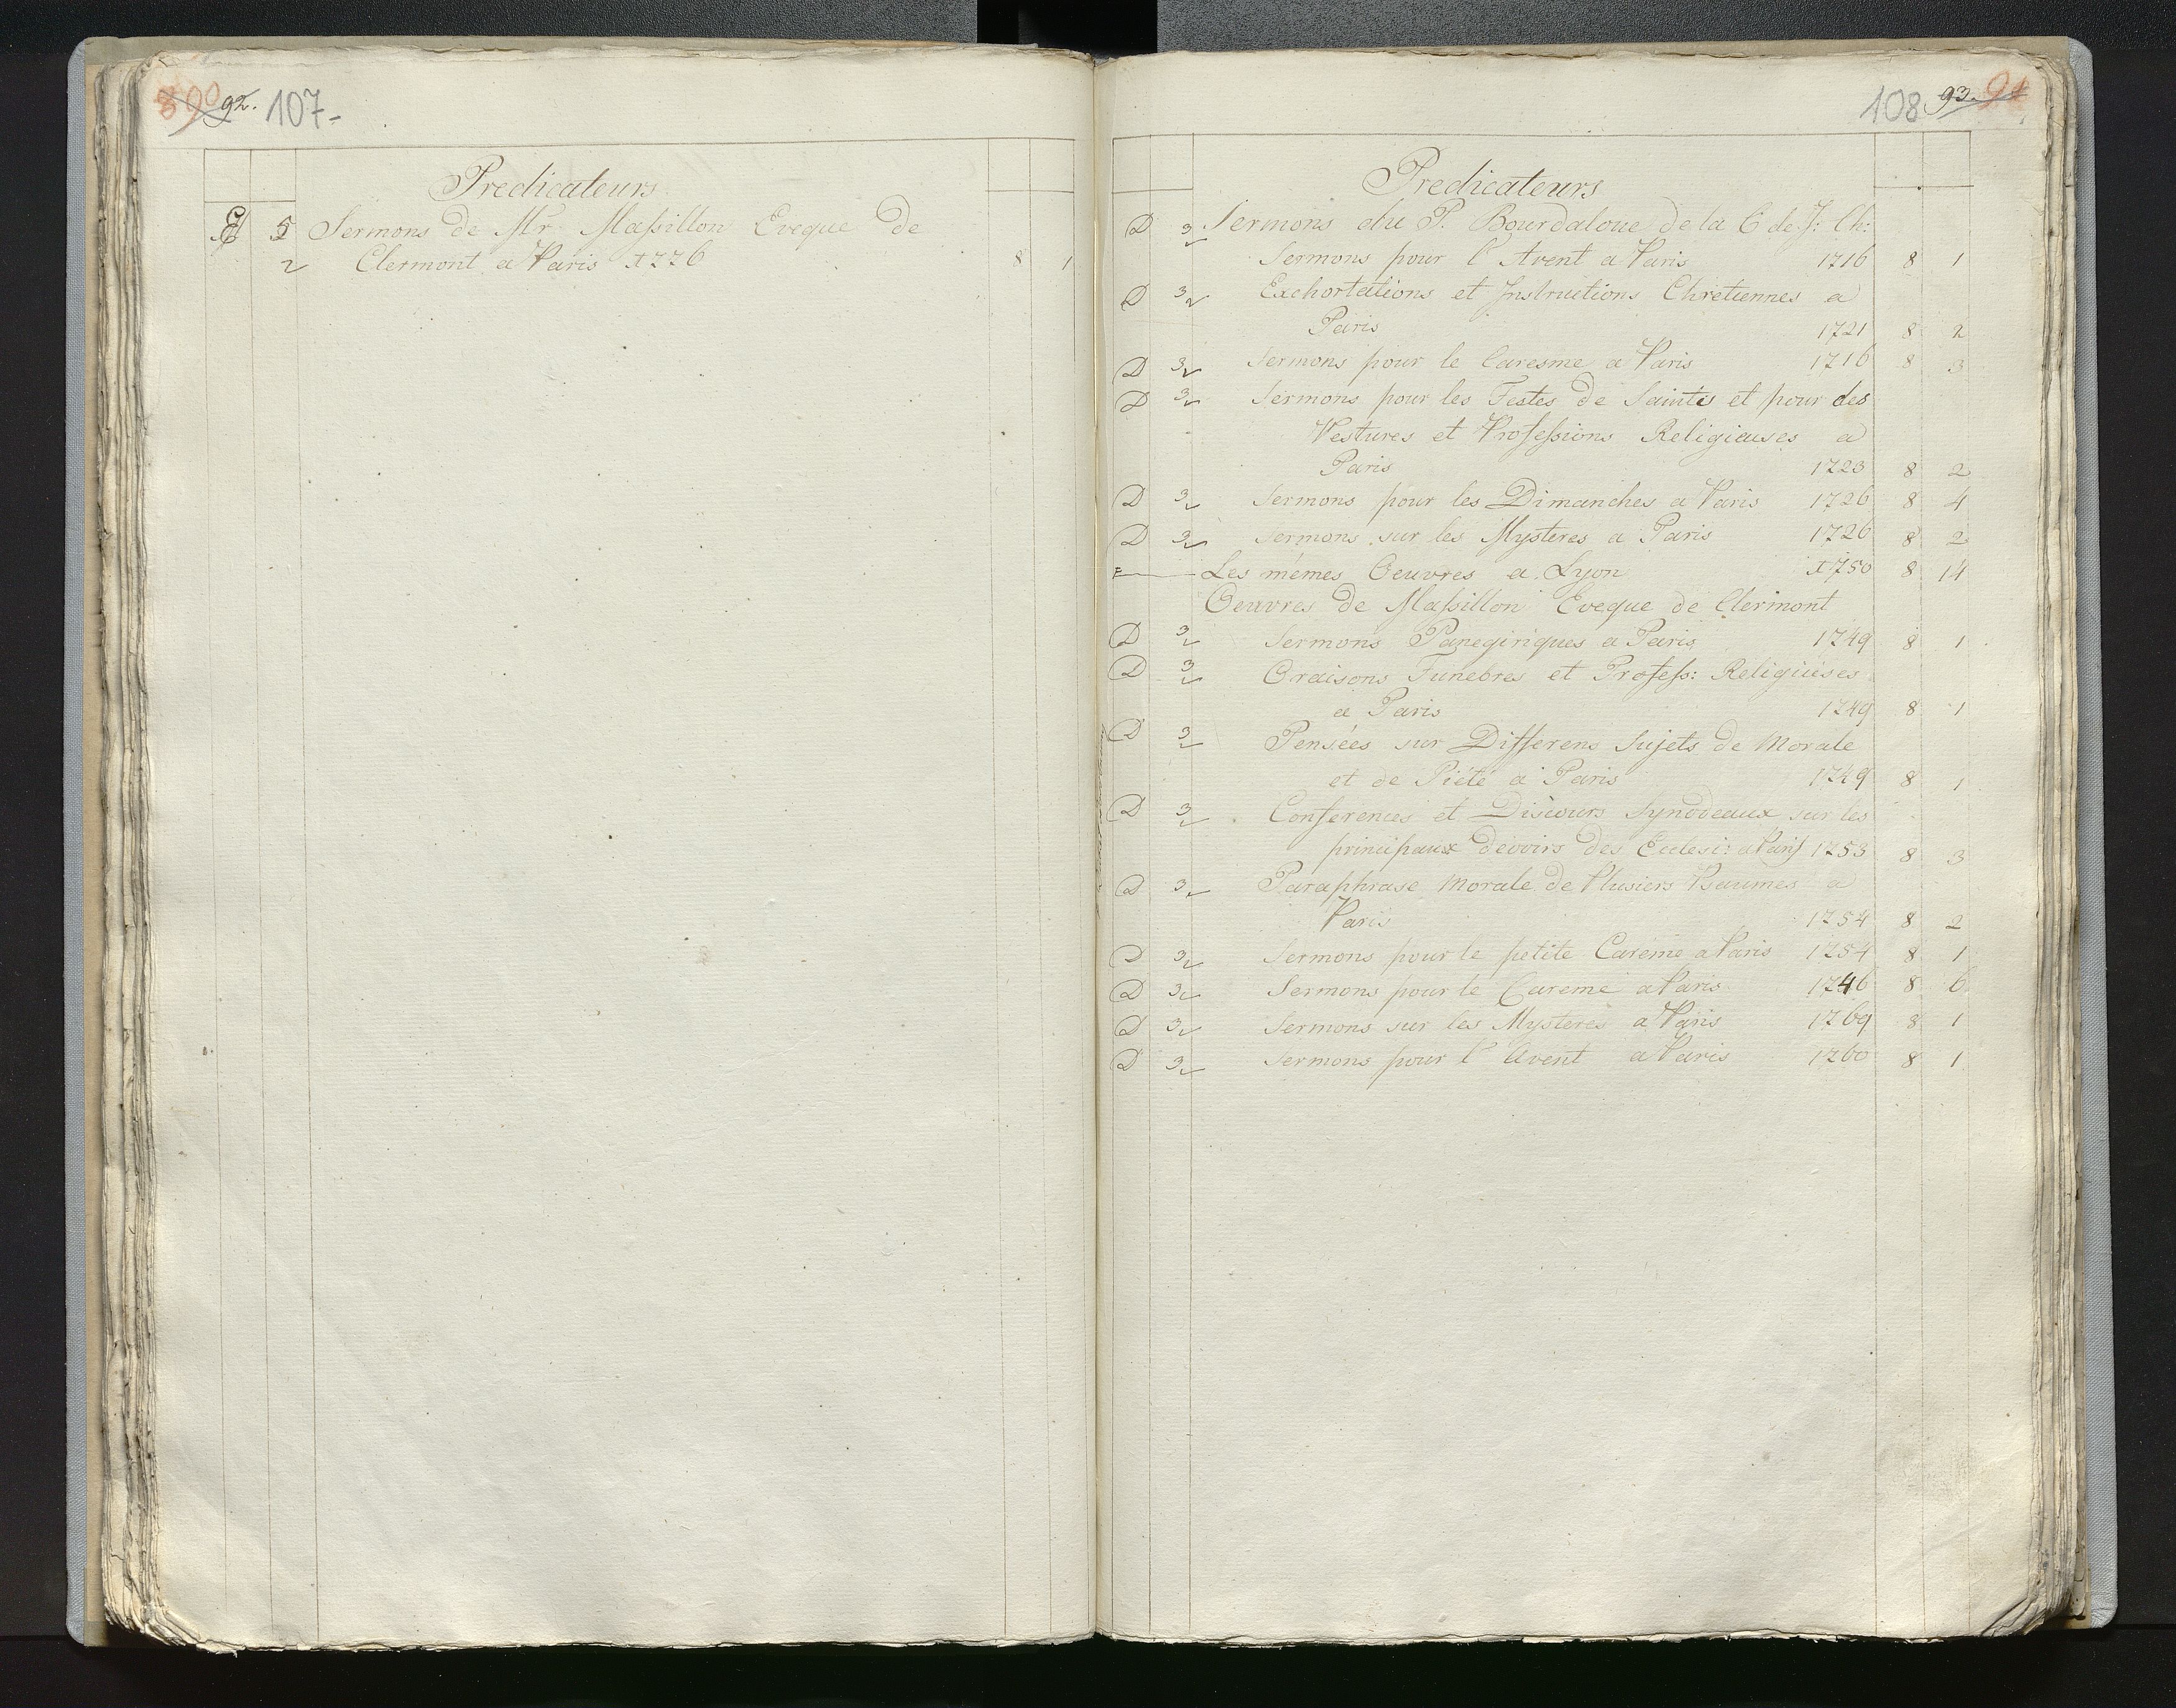 92. 107-
Predicateurs
5 Sermons de Mr. Massillon Eveque de
2 Clermont a Paris 1776 8 1
108 93. 91
Predicateurs
D 3 Sermons du P. Bourdaloue de la C de J: Ch:
Sermons pour l'Avent a Paris 1716 8 1
D 3 2 Exchortations et Instructions Chretiennes a
Paris 1721 8 2
D 3 Sermons pour le Caresme a Paris 1716 8 3
D 3 Sermons pour les Festes de Saintes et pour des
Vestures et Professions Religieuses a
Paris 1723 8 2
D 3 Sermons pour les Dimanches a Paris 1726 8 4
D 3 Sermons sur les Mysteres a Paris 1726 8 2
Les mémes Oeuvres a Lyon 1750 8 14
Oeuvres de Massillon Eveque de Clermont
D 3 Sermons Panegiriques a Paris 1749 8 1
D 3 Oraisons Funebres et Profess: Religiüéses
a Paris 1749 8 1
D 3 Pensées sur Differens Sujets de Morale
et de Piété a Paris 1749 8 1
D 3 Conferences et Discours Synodeaux sur les
principaux devoirs des Eclesi: a Paris 1753 8 3
D 3 Paraphrase Morale de Plusiers Psaumes a
Paris 1754 8 2
D 3 Sermons pour le petite Caréme a Paris 1754 8 1
D 3 Sermons pour le Careme a Paris 1746 8 6
D 3 Sermons sur les Mysteres a Paris 1769 8 1
D 3 Sermons pour l'Avent a Paris 1760 8 1